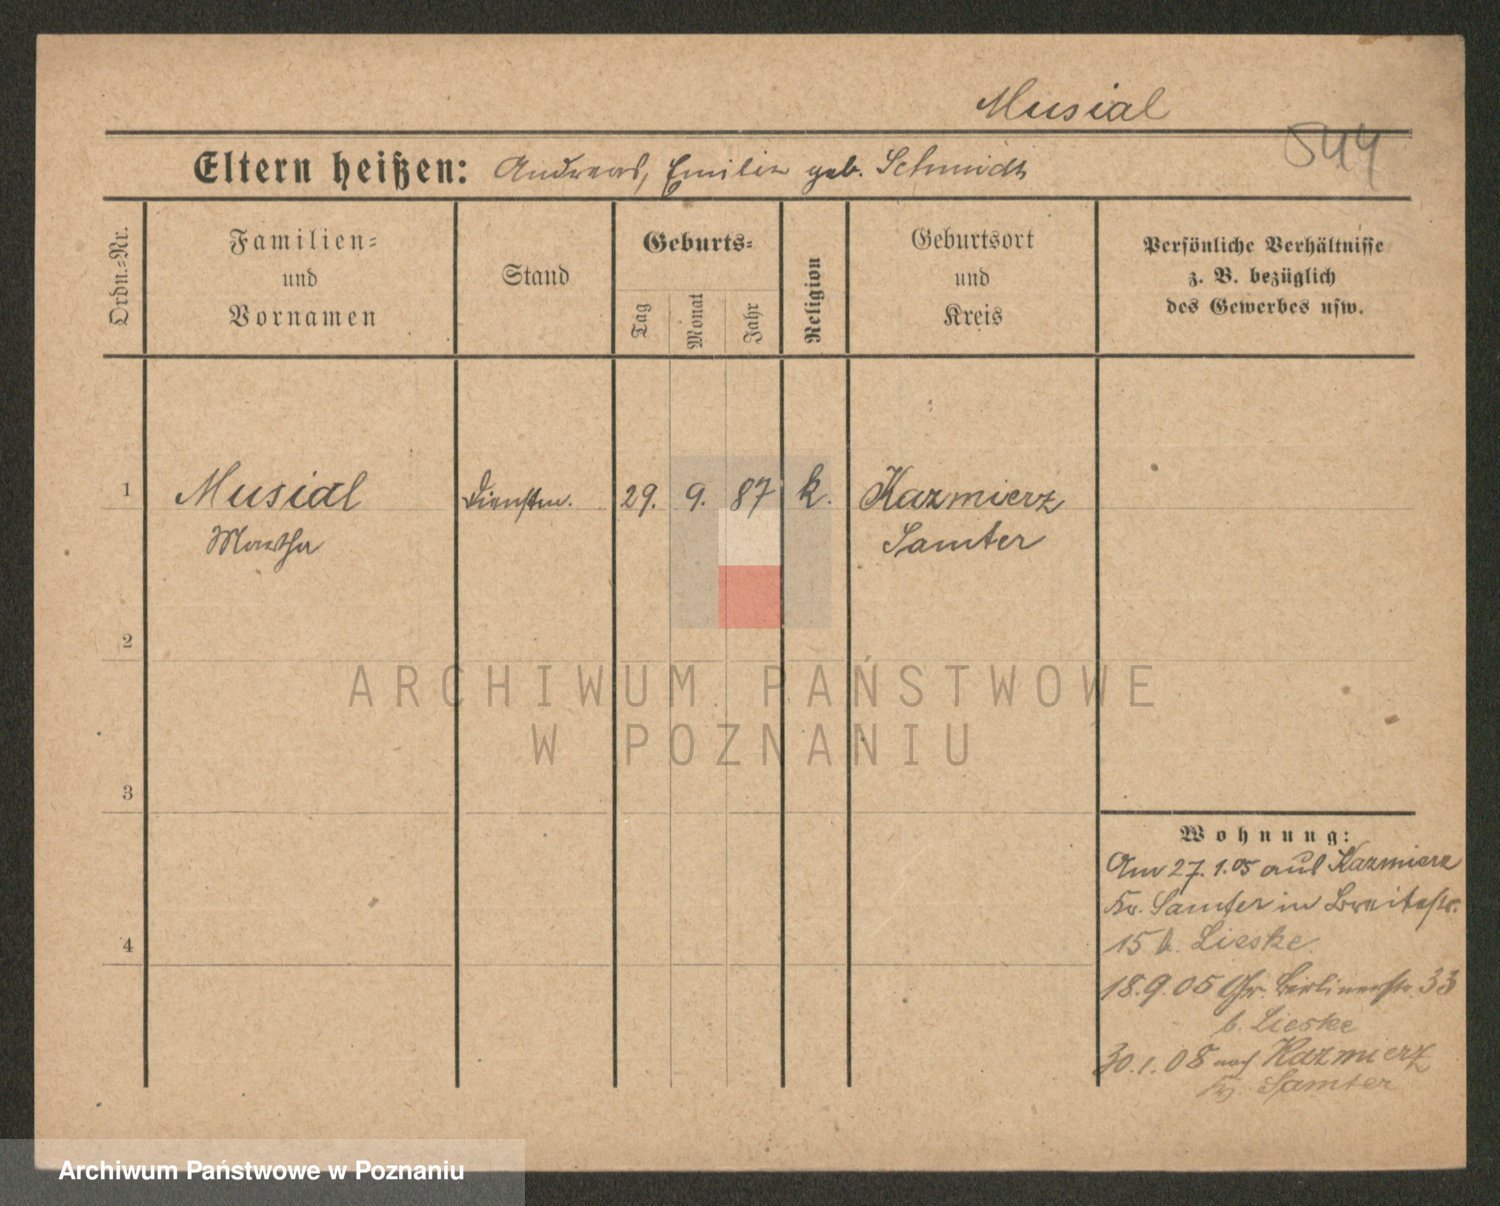 Musial
544
Eltern heißen: Andreas, Emilie geb. Schmidt
Ordn.-Nr.
Familien-
und
Vornamen
Stand
Geburts-
Tag
Monat
Jahr
Religion
Geburtsort
und
Kreis
Persönliche Verhältnisse
z. B. bezüglich
des Gewerbes usw.
1 Musial Dienstm. 29. 9. 87 k. Kazmierz
Martha Samter
2
3
4
ARCHIWUM PAŃSTWOWE
W POZNANIU
Wohnung:
Am 27.1.05 aus Kazmierz
Kr. Samter in Breitestr.
15 b. Lieske.
18.9.05 Gr. Berlinerstr. 33
b. Lieske
30.1.08 nach Kazmierz
Kr. Samter
Archiwum Państwowe w Poznaniu